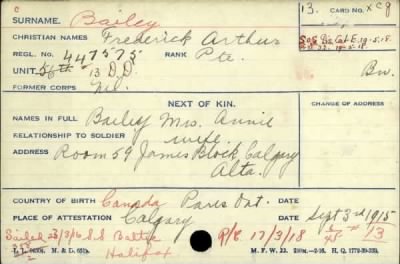 C
SURNAME. Bailey 13. CARD NO. XC9
CHRISTIAN NAMES Frederick Arthur
REGL. NO. 447575 RANK Pte.
UNIT 56th 13 D.D.
FORMER CORPS Nil.
NEXT OF KIN.
CHANGE OF ADDRESS
NAMES IN FULL Bailey Mrs. Annie
RELATIONSHIP TO SOLDIER wife
ADDRESS Room 59 James Block, Calgary
Alta.
COUNTRY OF BIRTH Canada Paris Ont. DATE
PLACE OF ATTESTATION Calgary DATE Sept 3rd 1915
Sailed 23/3/16 S.S. Baltic R/C 17/3/18 13
Halifax
M. F. W. 22.